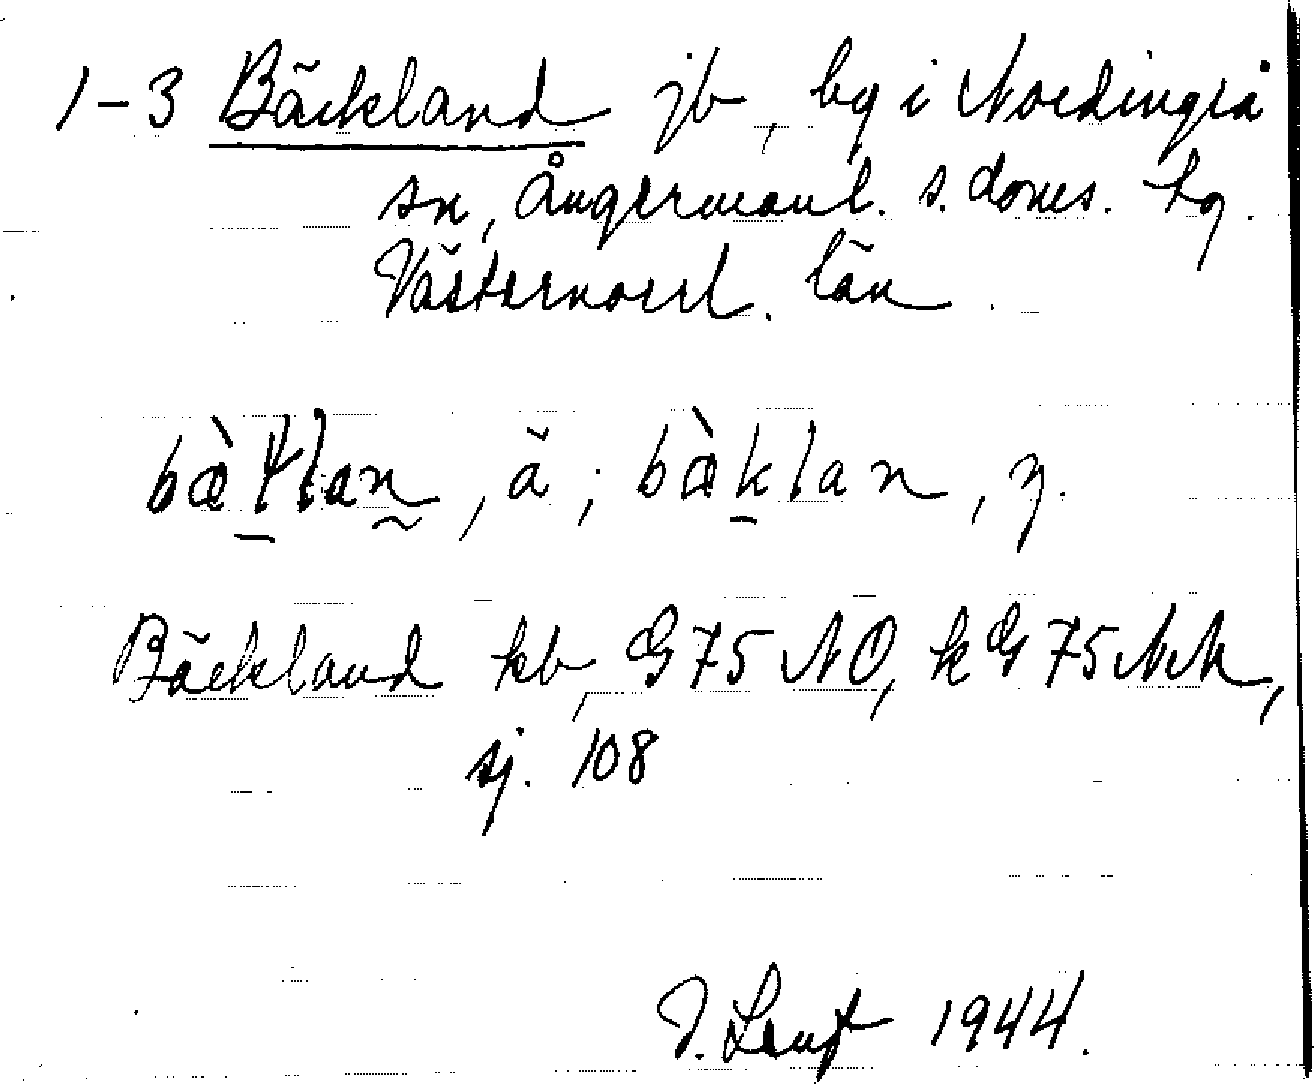 1-3 Bäckland jb, bg i Nordingrå
sn, Ångermanl. s. doms. hg.
Västernorrl. län.
bæ̀klan, ă; bæ̀klan, y.
Bäckland kb, G 75 NO, k G 75 NN,
sj. 108
1944.